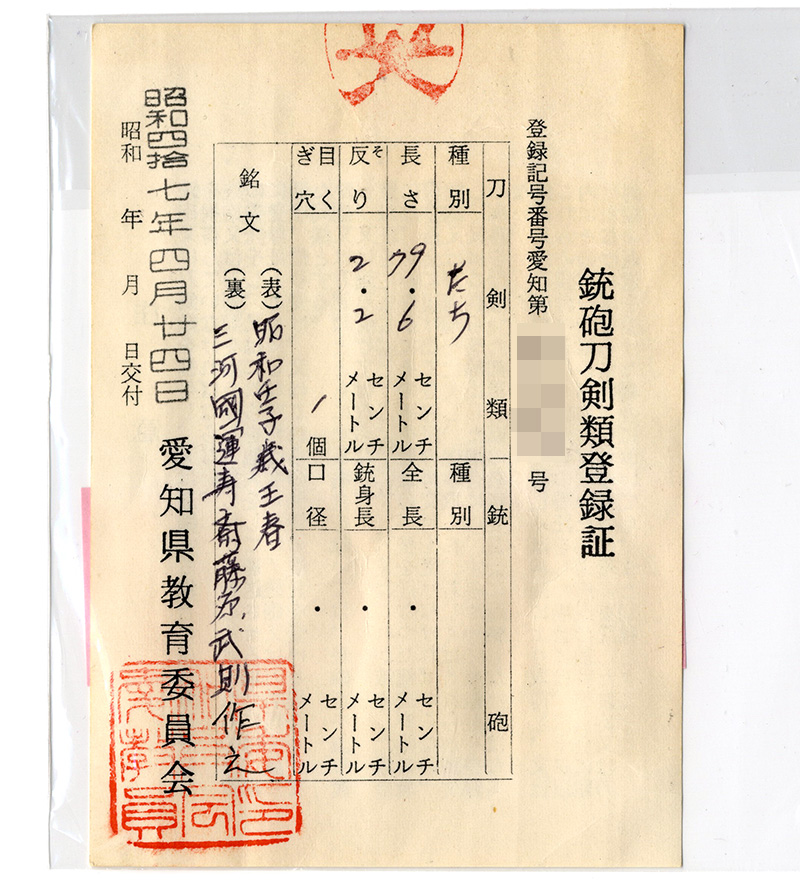 銃砲刀剣類登録証
登録記号番号愛知第 号
刀剣類
種別 たち
長さ 79.6 センチメートル
反り 2.2 センチメートル
そ
目くぎ穴 1個
銃砲
種別
全長 ・ センチメートル
銃身長 ・ センチメートル
口径 ・ センチメートル
銘文
(表) 昭和壬子歳王春
(裏) 三河國運寿斎藤原武則作之
昭和 年 月 日交付
昭和四拾七年四月廿四日
愛知県教育委員会